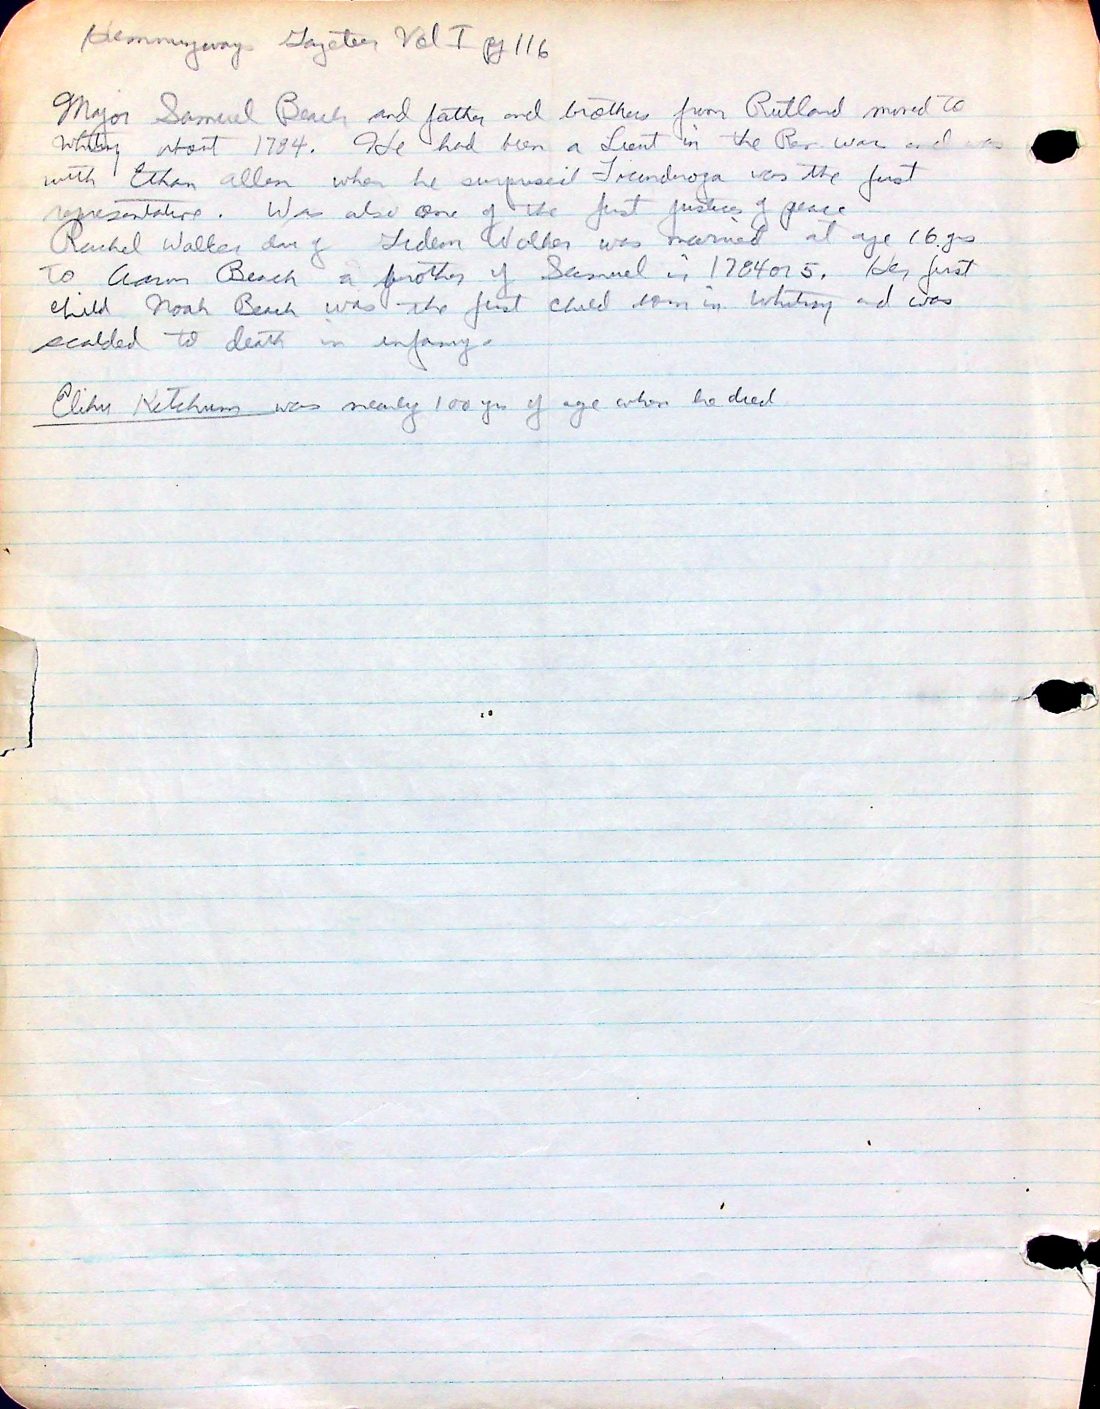 Hemmingways Gazeteer Vol I pg 116
Major Samuel Beach and father and brothers from Rutland moved to
Whiting about 1784. He had been a Lieut in the Rev. war and was
with Ethan Allen when he surprised Ticonderoga was the first
representative. Was also one of the first justices of peace
Rachel Walker dau of Gideon Walker was married at age 16 yrs
to Aaron Beach a brother of Samuel in 1784 or 5. Her first
child Noah Beach was the first child born in Whiting and was
scalded to death in infancy.
Elihu Ketchum was nearly 100 yrs of age when he died